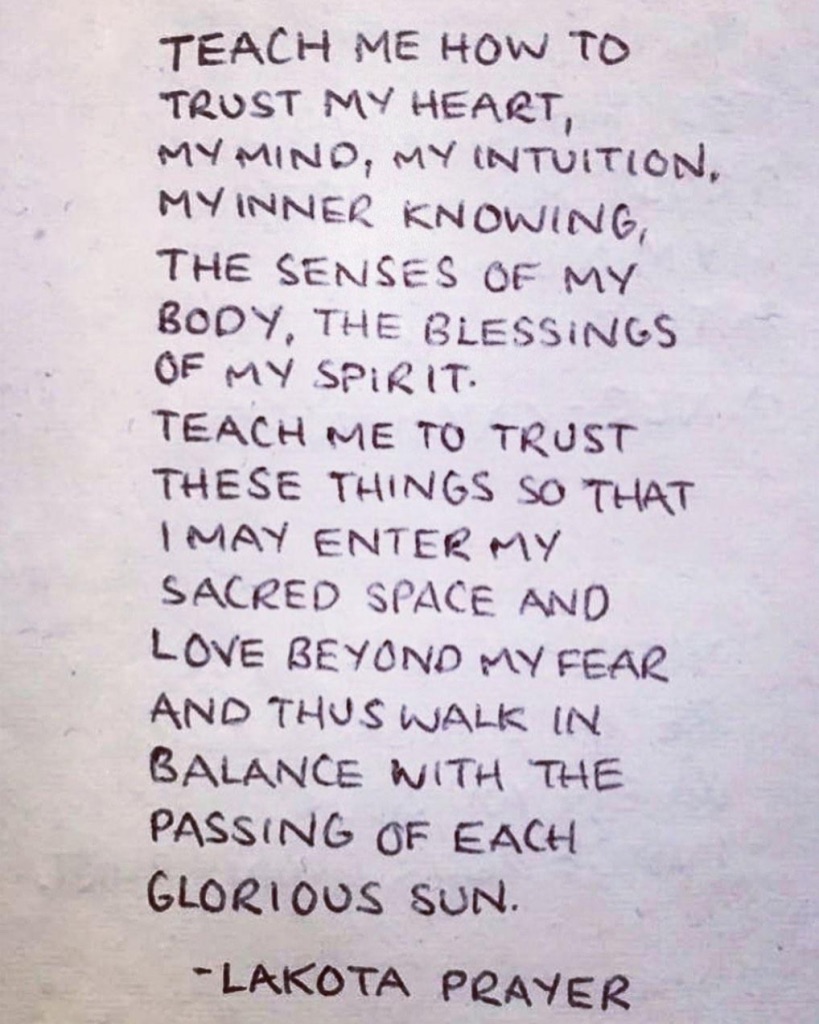 TEACH ME HOW TO
TRUST MY HEART,
MY MIND, MY INTUITION.
MY INNER KNOWING,
THE SENSES OF MY
BODY, THE BLESSINGS
OF MY SPIRIT.
TEACH ME TO TRUST
THESE THINGS SO THAT
I MAY ENTER MY
SACRED SPACE AND
LOVE BEYOND MY FEAR
AND THUS WALK IN
BALANCE WITH THE
PASSING OF EACH
GLORIOUS SUN.
-LAKOTA PRAYER